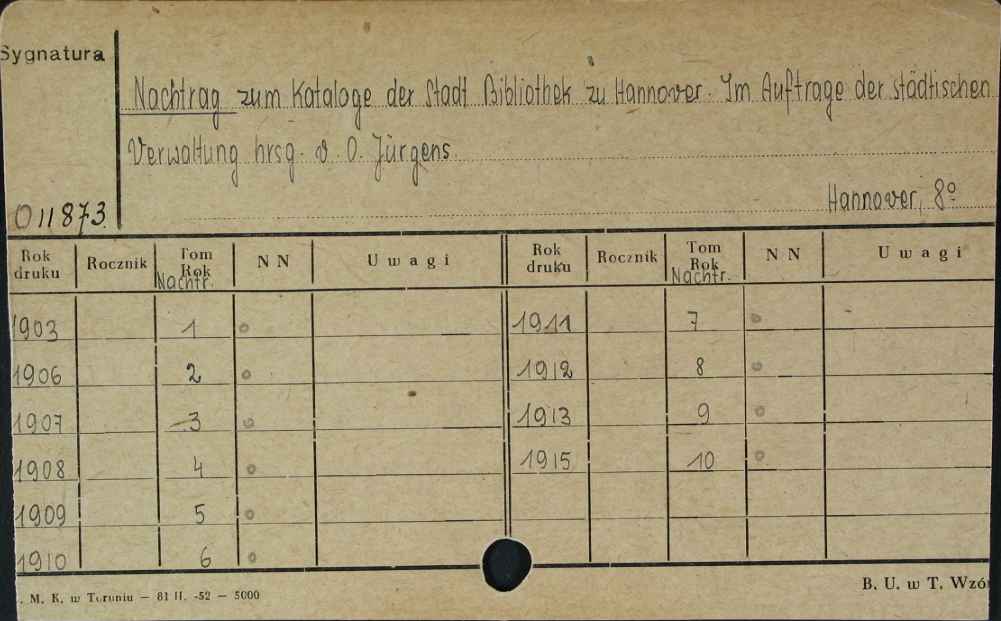 Sygnatura
Nachtrag zum Kataloge der Stadt Bibliothek zu Hannover. Im Auftrage der städtischen
Verwaltung hrsg. v. O. Jürgens.
Hannover, 8º
O 11873.
Rok druku Rocznik Tom Rok NN Uwagi Rok druku Rocznik Tom Rok NN Uwagi
Nachtr. Nachtr.
1903 1 o 1911 7 o
1906 2 o 1912 8 o
1907 3 o 1913 9 o
1908 4 o 1915 10 o
1909 5 o
1910 6 o
. M. K. w Toruniu — 81 II. -52 — 5000
B. U. w T. Wzó